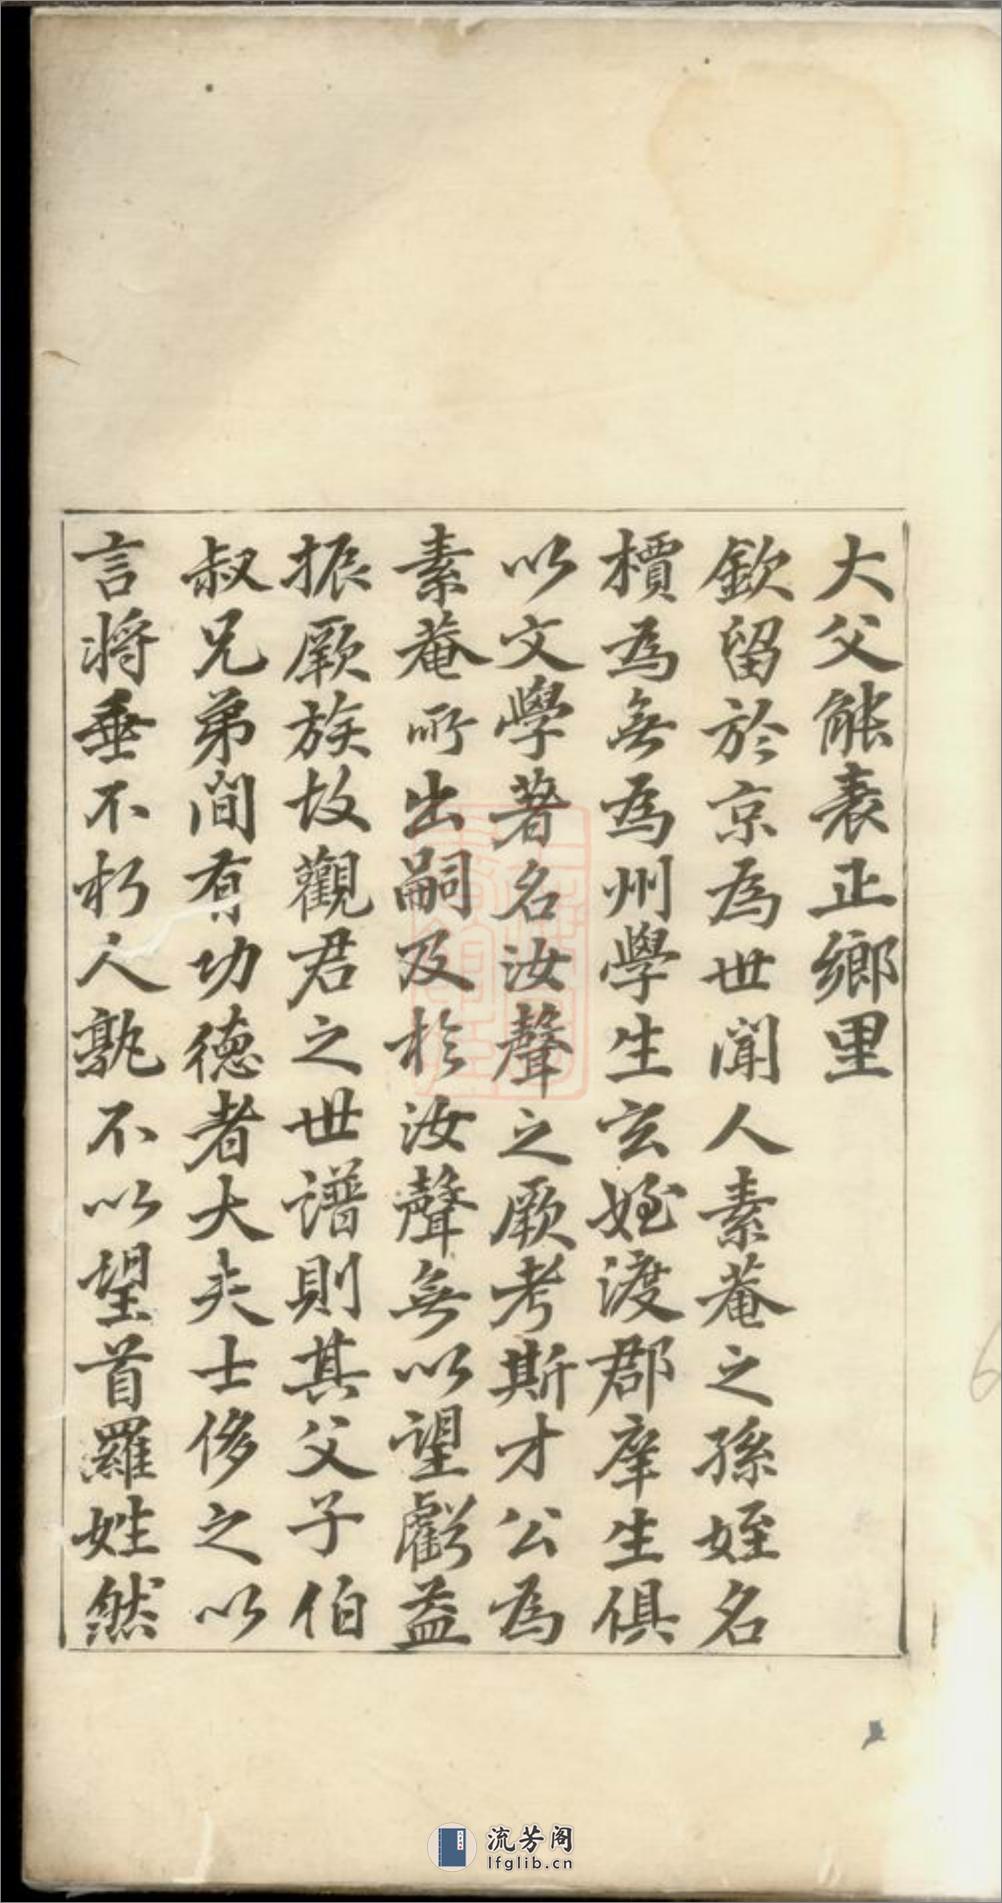 大父能表正鄉里
欽留於京為世聞人素菴之孫姪名
檟為無為州學生玄姪渡郡庠生俱
以文學著名汝聲之厥考斯才公為
素菴所出嗣及於汝聲無以望虧益
振厥族故觀君之世譜則其父子伯
叔兄弟間有功德者大夫士侈之以
言將垂不朽人孰不以望首羅姓然
流芳阁
lfglib.cn